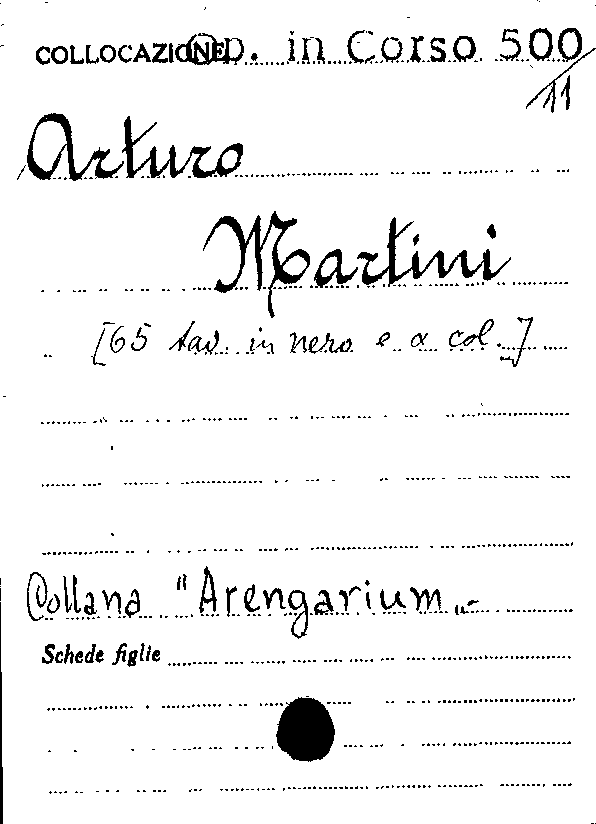 COLLOCAZIONE Op. in Corso 500/
11
Arturo
Martini
[65 tav. in nero e a col.]
Collana "Arengarium„-
Schede figlie